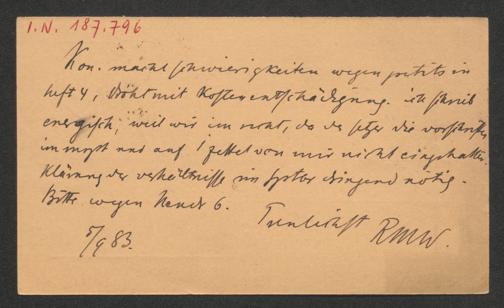 I.N. 187.796
Kon. macht schwierigkeiten wegen petits in
heft 4, droht mit Kostenentschädigung. ich schrieb
energisch, weil wir im recht, da der setzer die vorschriften
im mspt und auf 1 zettel von mir nicht eingehalten.
Klärung der verhältnisse im dringend nötig.
Bitte wegen 6.
RMW.
5/9 83.